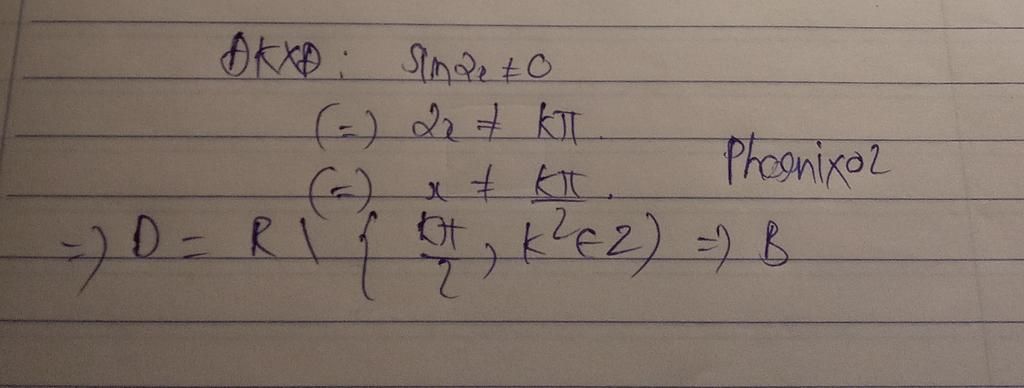 ĐKXĐ: sin2x ≠ 0
(=) 2x ≠ kπ.
(=) x ≠ kπ/2.
Phoenix02
=) D = R \ { kπ/2, k ∈ Z) =) B